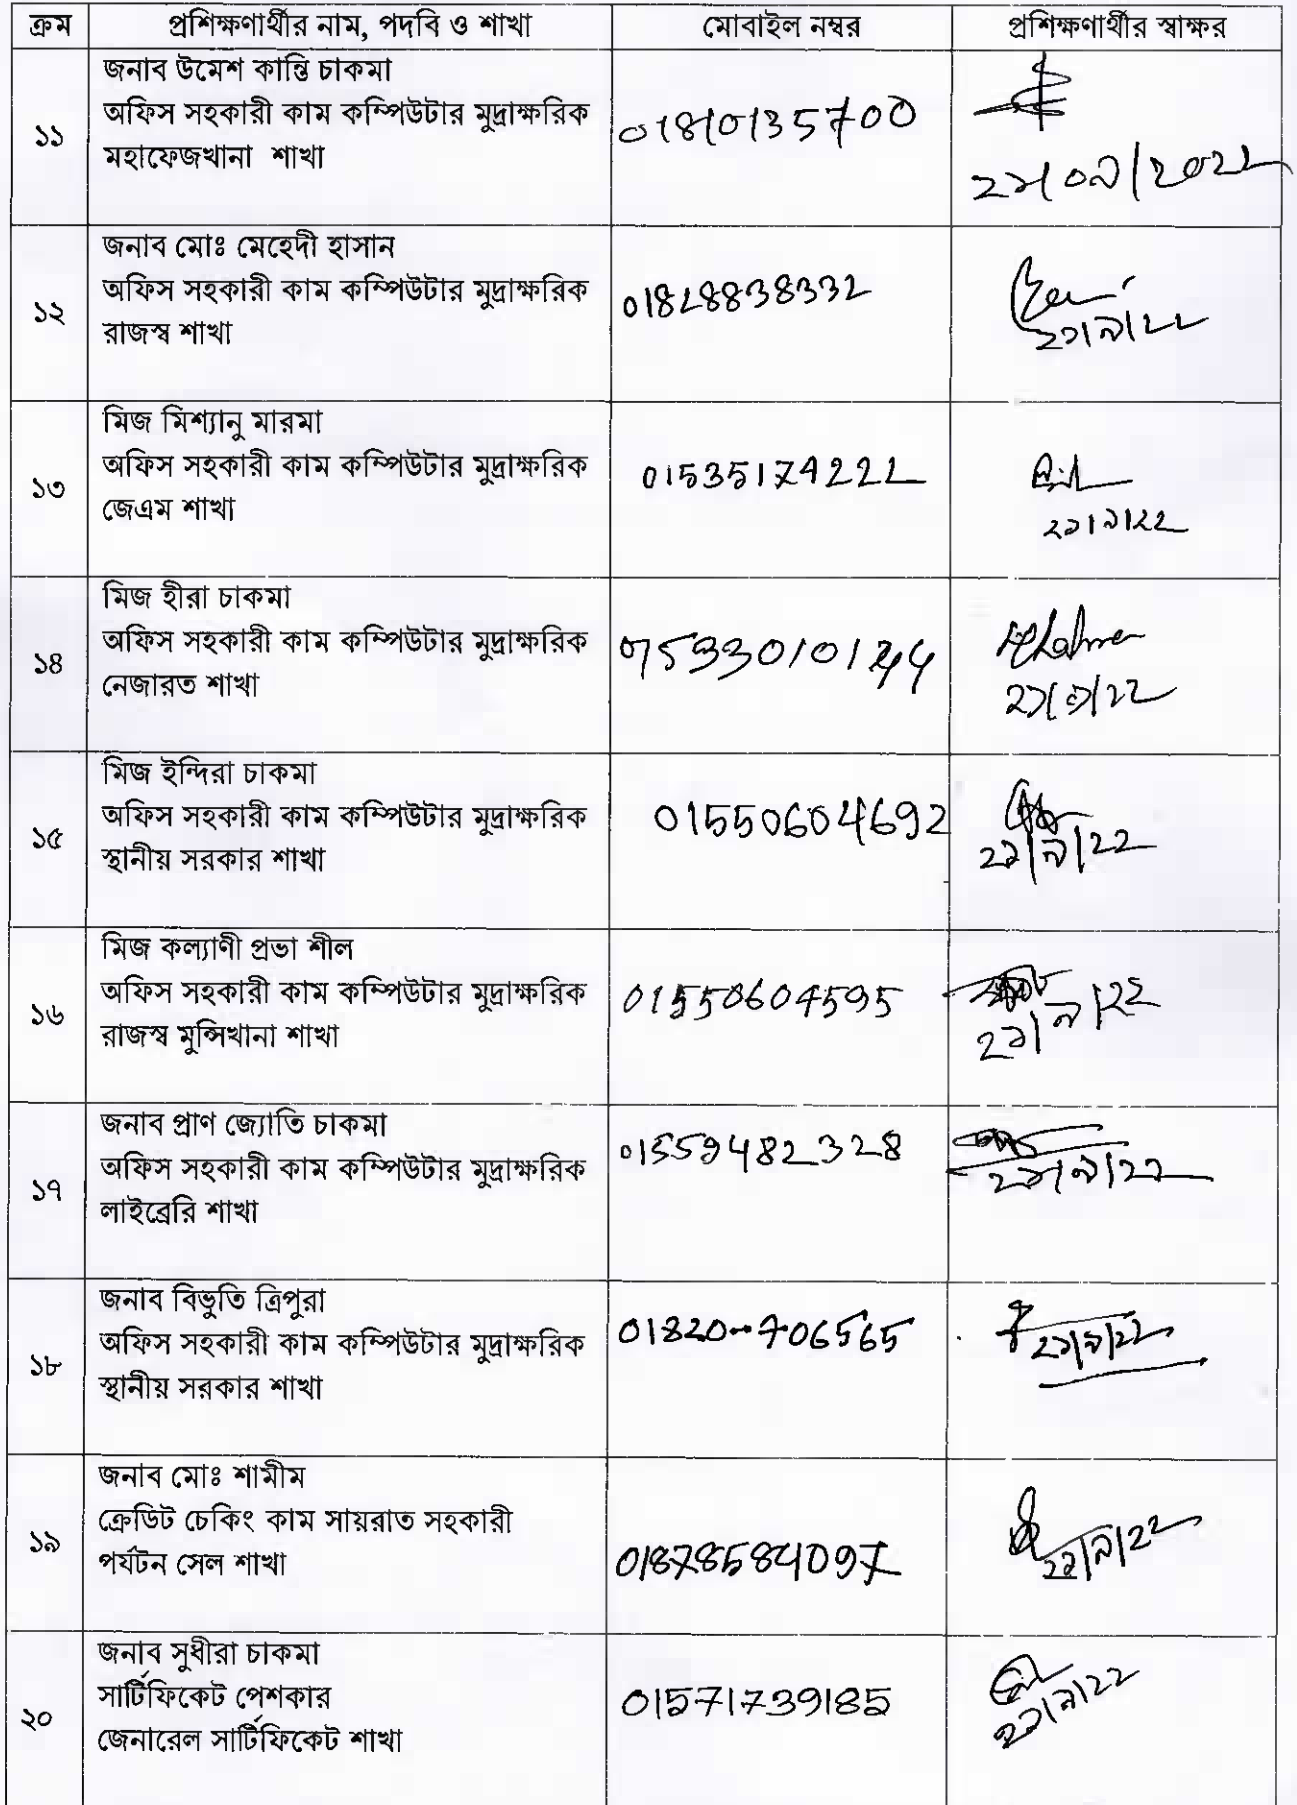 ক্রম প্রশিক্ষণার্থীর নাম, পদবি ও শাখা মোবাইল নম্বর প্রশিক্ষণার্থীর স্বাক্ষর
১১
জনাব উমেশ কান্তি চাকমা
অফিস সহকারী কাম কম্পিউটার মুদ্রাক্ষরিক
মহাফেজখানা শাখা
01810135700
২১/০৯/২০২২
১২
জনাব মোঃ মেহেদী হাসান
অফিস সহকারী কাম কম্পিউটার মুদ্রাক্ষরিক
রাজস্ব শাখা
01828838332
২১/৯/২২
১৩
মিজ মিশ্যানু মারমা
অফিস সহকারী কাম কম্পিউটার মুদ্রাক্ষরিক
জেএম শাখা
01535174222
২১/৯/২২
১৪
মিজ হীরা চাকমা
অফিস সহকারী কাম কম্পিউটার মুদ্রাক্ষরিক
নেজারত শাখা
২১/৯/২২
১৫
মিজ ইন্দিরা চাকমা
অফিস সহকারী কাম কম্পিউটার মুদ্রাক্ষরিক
স্থানীয় সরকার শাখা
01550604692
২১/৯/২২
১৬
মিজ কল্যাণী প্রভা শীল
অফিস সহকারী কাম কম্পিউটার মুদ্রাক্ষরিক
রাজস্ব মুন্সিখানা শাখা
01550604595
২১/৯/২২
১৭
জনাব প্রাণ জ্যোতি চাকমা
অফিস সহকারী কাম কম্পিউটার মুদ্রাক্ষরিক
লাইব্রেরি শাখা
01559482328
২১/৯/২২
১৮
জনাব বিভুতি ত্রিপুরা
অফিস সহকারী কাম কম্পিউটার মুদ্রাক্ষরিক
স্থানীয় সরকার শাখা
01820-706565
২১/৯/২২
১৯
জনাব মোঃ শামীম
ক্রেডিট চেকিং কাম সায়রাত সহকারী
পর্যটন সেল শাখা
01878584097
২১/৯/২২
২০
জনাব সুধীরা চাকমা
সার্টিফিকেট পেশকার
জেনারেল সার্টিফিকেট শাখা
01571739185
২১/৯/২২